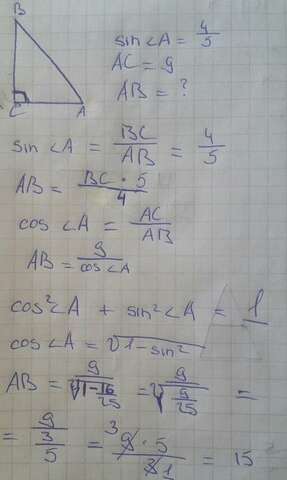 B
C
A
sin∠A = 4/5
AC = 9
AB = ?
sin∠A = BC/AB = 4/5
AB = BC · 5/4
cos∠A = AC/AB
AB = 9/cos∠A
cos²∠A + sin²∠A = 1
cos∠A = √1-sin²
AB = 9/√1-16/25 = 9/√9/25 =
= 9/3/5 = ³9 · 5/3 1 = 15